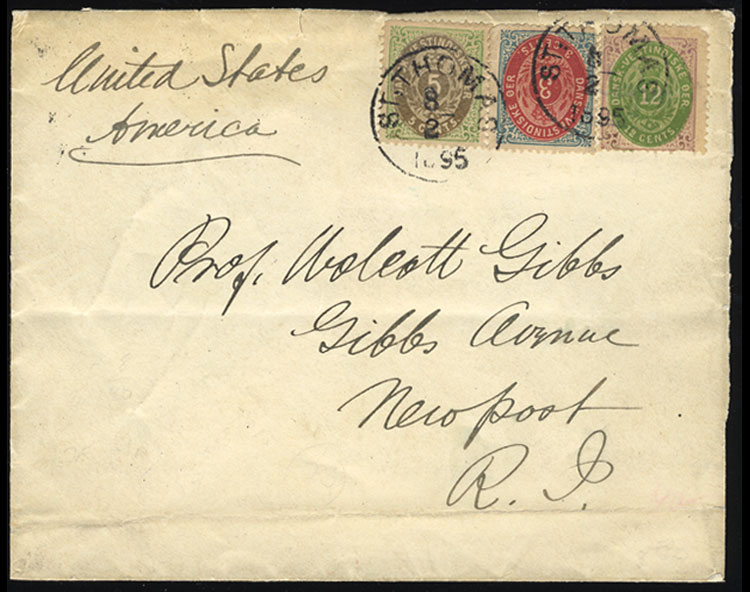 United States
America
ST. THOMAS
8
2
1895
5
5 CENTS
3
DANSK VESTINDISKE DER
ST. THOMAS
1895
DANSK VESTINDISKE DER
12
12 CENTS
Prof. Wolcott Gibbs
Gibbs Avenue
Newport
R. I.